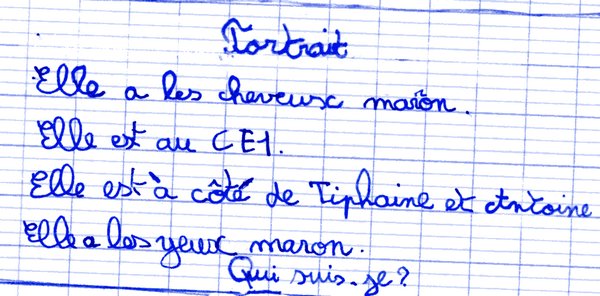 Portrait
Elle a les cheveux maron.
Elle est au CE1.
Elle est à côté de Tiphaine et Antoine
Elle a les yeux maron.
Qui suis-je?